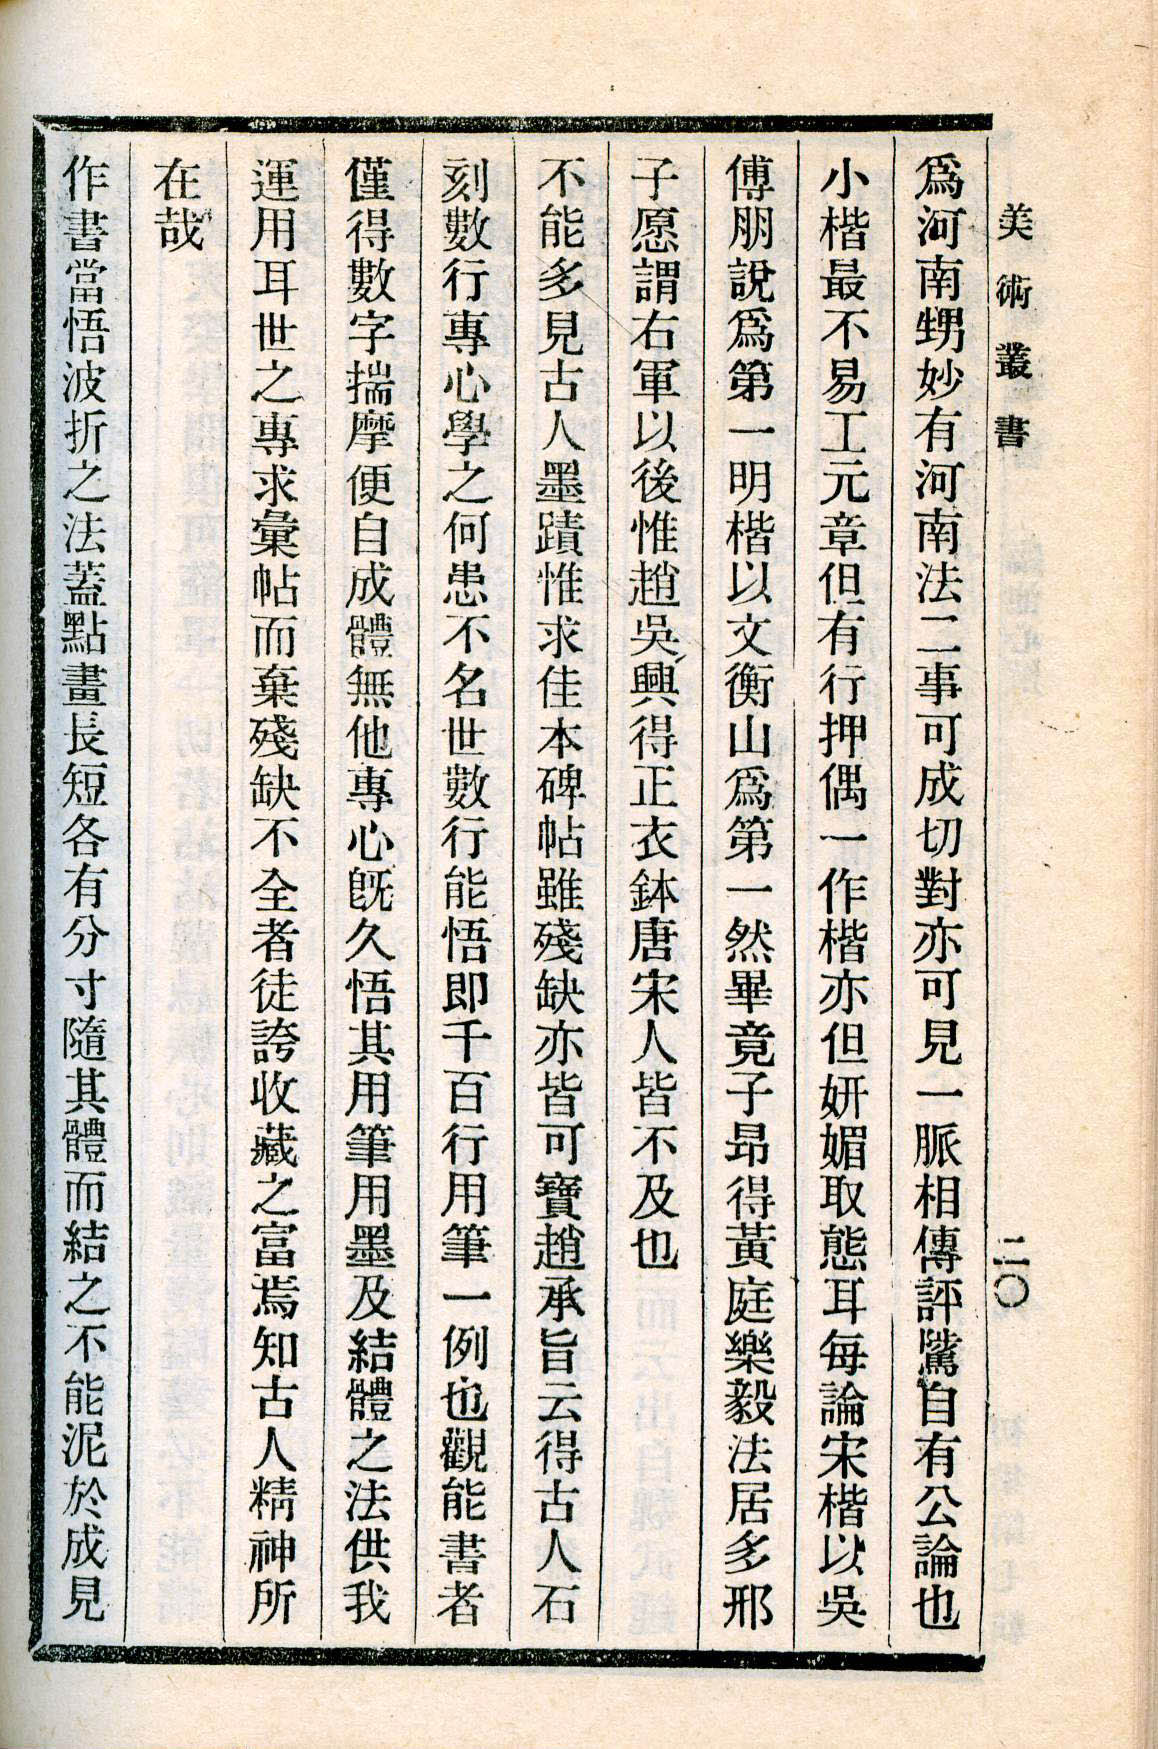 美術叢書
二〇
爲河南甥妙有河南法二事可成切對亦可見一脈相傳評騭自有公論也
小楷最不易工元章但有行押偶一作楷亦但妍媚取態耳每論宋楷以吳
傅朋說爲第一明楷以文衡山爲第一然畢竟子昂得黃庭樂毅法居多邢
子愿謂右軍以後惟趙吳興得正衣鉢唐宋人皆不及也
不能多見古人墨蹟惟求佳本碑帖雖殘缺亦皆可寶趙承旨云得古人石
刻數行專心學之何患不名世數行能悟即千百行用筆一例也觀能書者
僅得數字揣摩便自成體無他專心旣久悟其用筆用墨及結體之法供我
運用耳世之專求彙帖而棄殘缺不全者徒誇收藏之富焉知古人精神所
在哉
作書當悟波折之法蓋點畫長短各有分寸隨其體而結之不能泥於成見